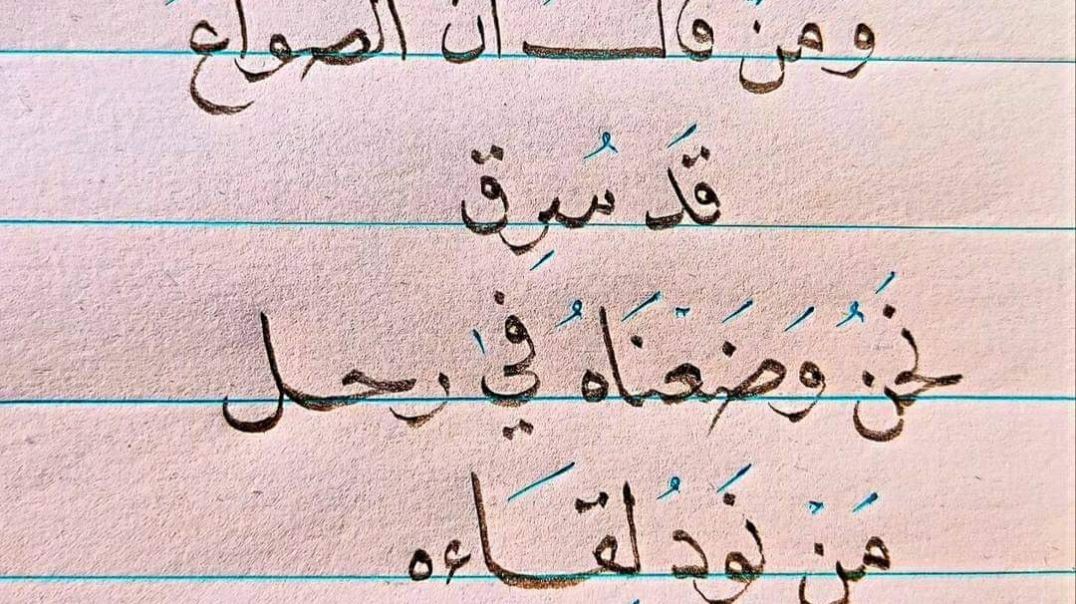 ومن قال أن الصواع
قَد سُرِق
نَحنُ وَضَعْنَاهُ في رحل
مَنْ نَودُ لقَاءه